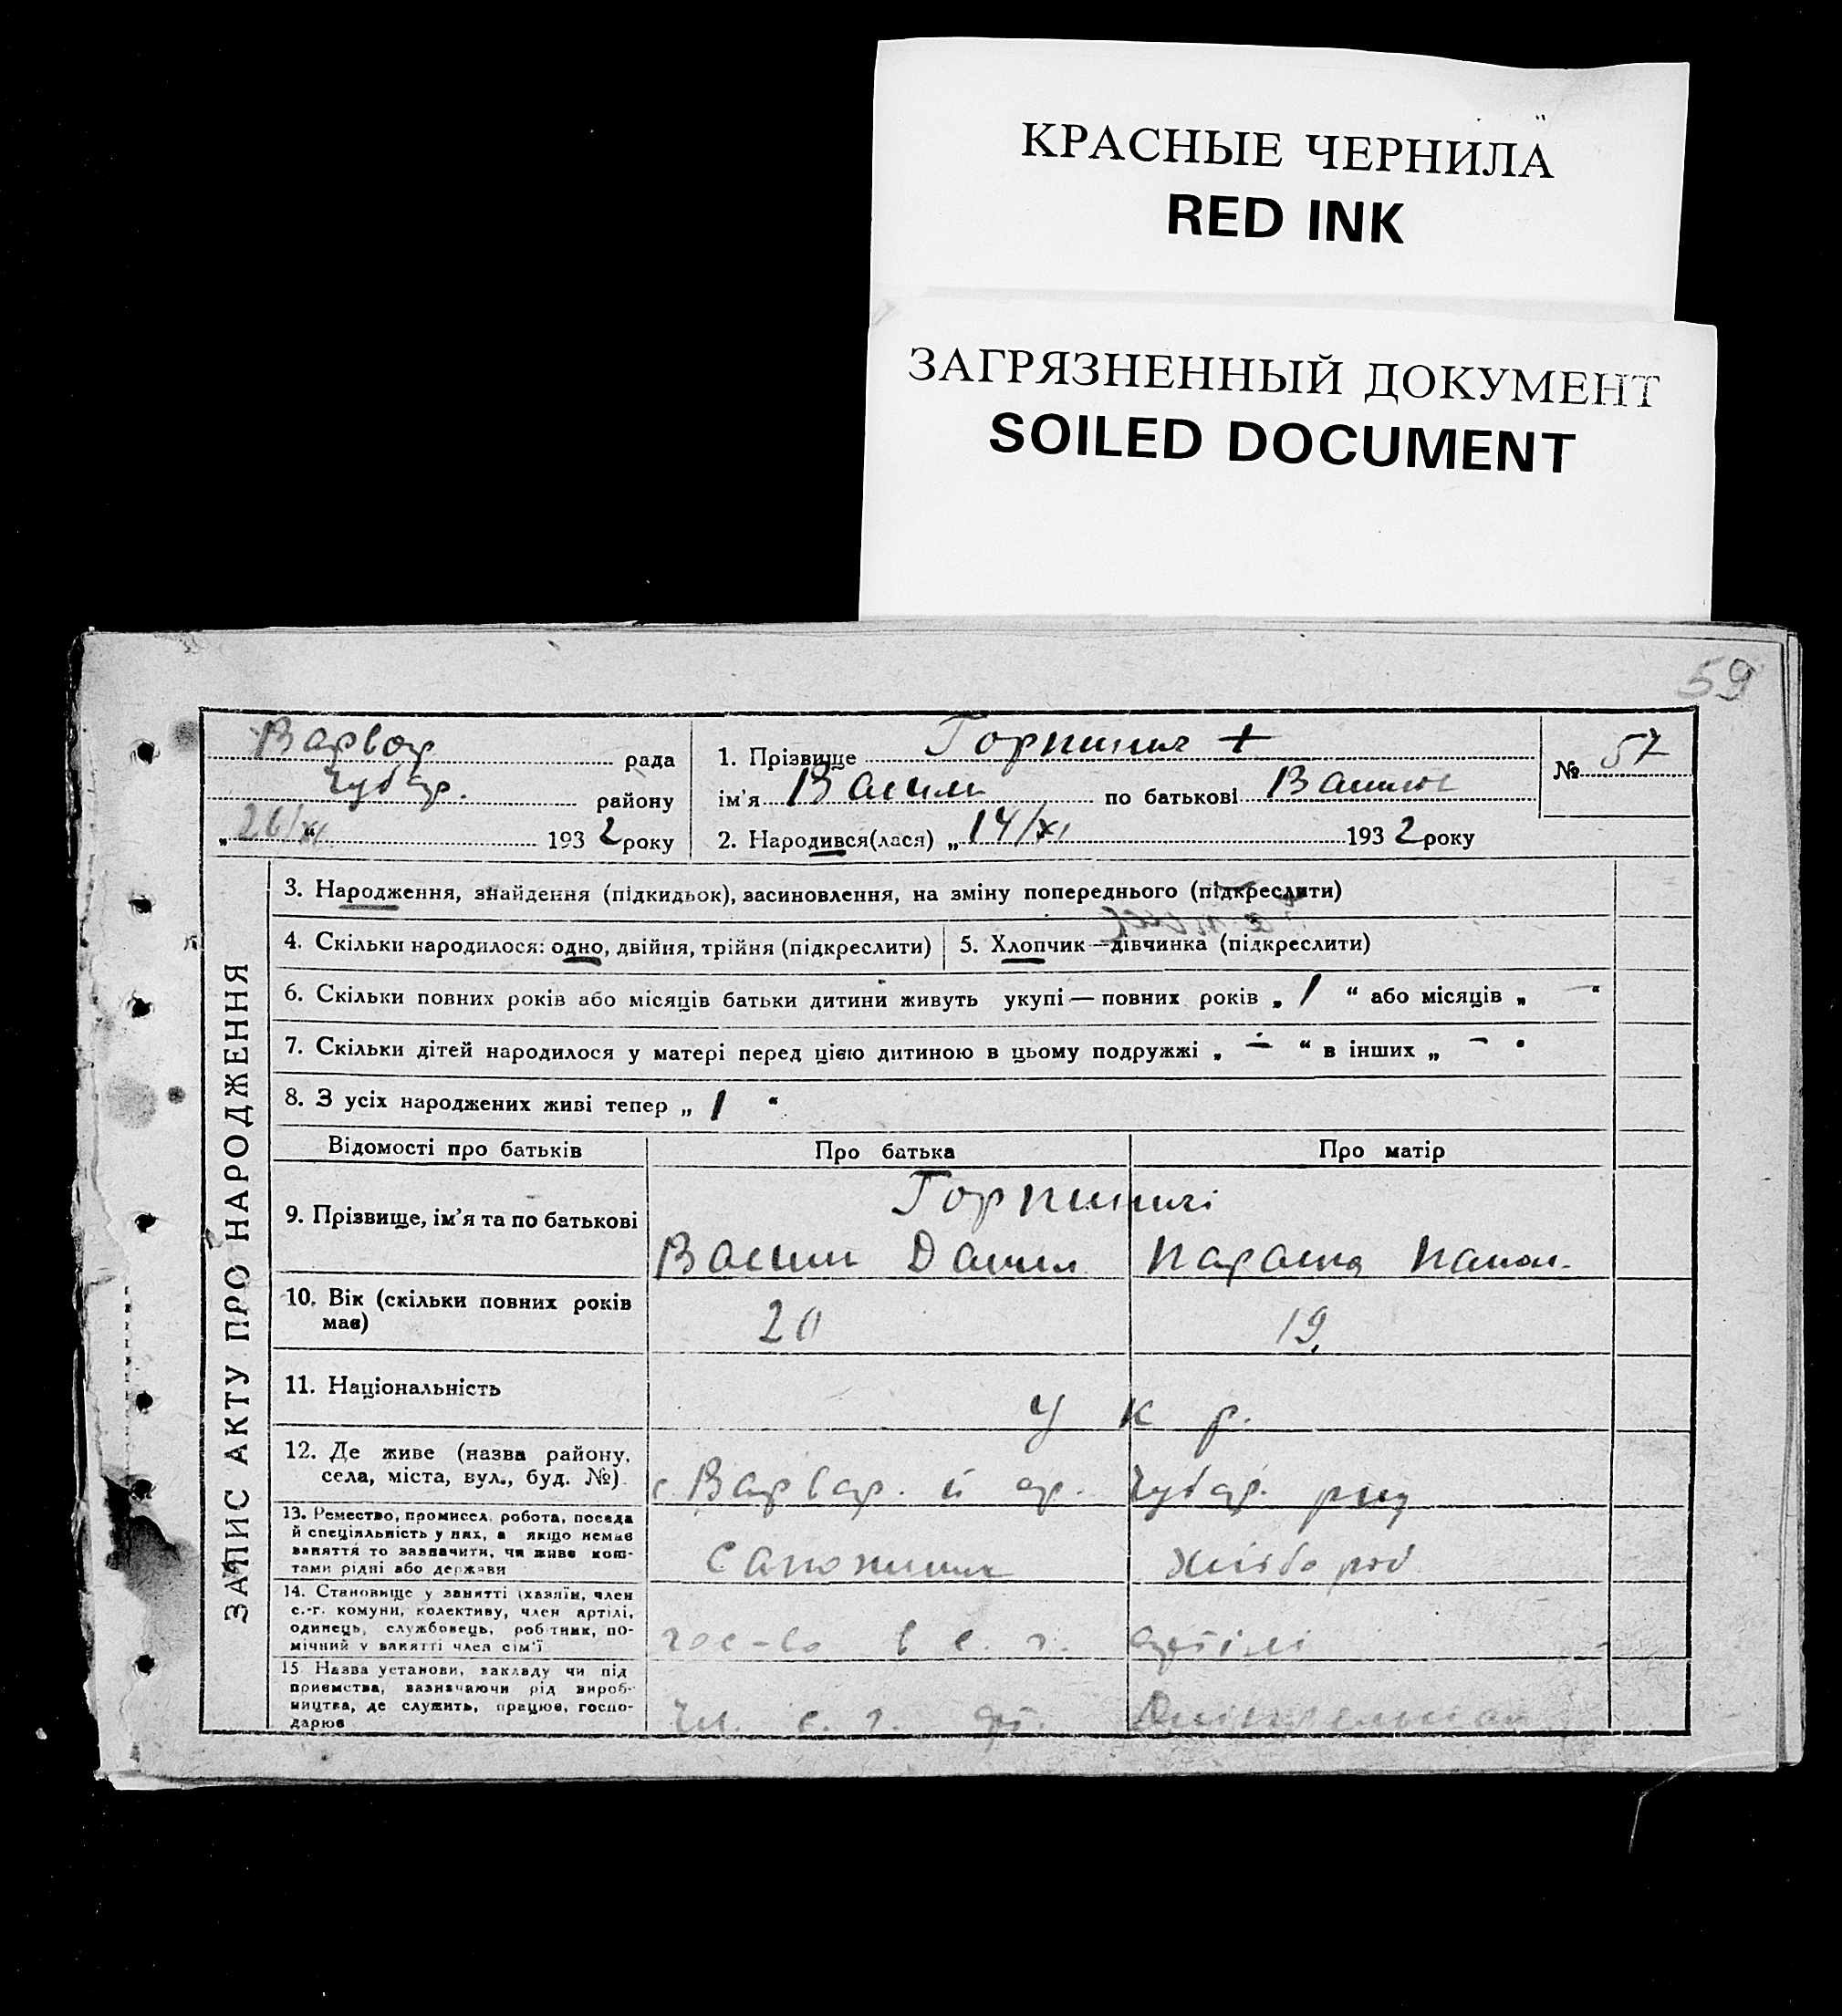 КРАСНЫЕ ЧЕРНИЛА
RED INK
ЗАГРЯЗНЕННЫЙ ДОКУМЕНТ
SOILED DOCUMENT
59
Варвар рада
Чубар. району
„26/XI“ 1932 року
1. Прізвище Горпинич +
ім'я Василь по батькові Васильов
2. Народився(лася) „14/XI 1932 року
№ 57
ЗАПИС АКТУ ПРО НАРОДЖЕННЯ
3. Народження, знайдення (підкидьок), засиновлення, на зміну попереднього (підкреслити)
4. Скільки народилося: одно, двійня, трійня (підкреслити)
5. Хлопчик—дівчинка (підкреслити)
6. Скільки повних років або місяців батьки дитини живуть укупі — повних років „ 1 “ або місяців „ — “
7. Скільки дітей народилося у матері перед цією дитиною в цьому подружжі „ — “ в інших „ — “
8. З усіх народжених живі тепер „ 1 “
Відомості про батьків Про батька Про матір
9. Прізвище, ім'я та по батькові
Горпиничі
Васил Данил Параска
10. Вік (скільки повних років має)
20 19
11. Національність
Укр.
12. Де живе (назва району, села, міста, вул., буд. №)
с. Варвар. Чубар. р-ну
13. Ремество, промисел, робота, посада
й спеціяльність у них, а якщо немає
заняття то зазначити, чи живе кош-
тами рідні або держави
хлібороб
14. Становище у занятті (хазяїн, член
с.-г. комуни, колективу, член артілі,
одинець, службовець, робітник, по-
мічний у занятті член сім'ї
гос-во в с. г. артілі
15 Назва установи, закладу чи під
приємства, зазначаючи рід вироб-
ництва, де служить, працює, госпо-
дарює
чл. с. г. ар.